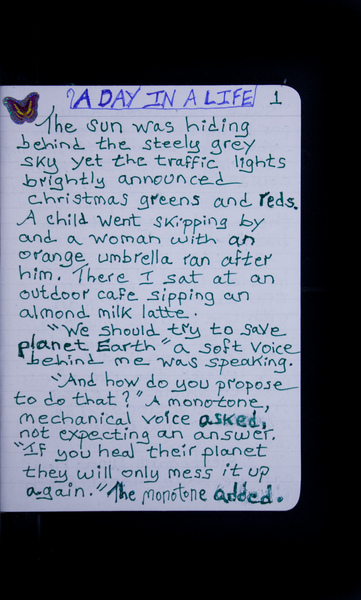 A DAY IN A LIFE 1
The sun was hiding
behind the steely grey
sky yet the traffic lights
brightly announced
christmas greens and reds.
A child went skipping by
and a woman with an
orange umbrella ran after
him. There I sat at an
outdoor cafe sipping an
almond milk latte.
"We should try to save
planet Earth" a soft voice
behind me was speaking.
"And how do you propose
to do that?" A monotone,
mechanical voice asked,
not expecting an answer.
"If you heal their planet
they will only mess it up
again." The monotone added.